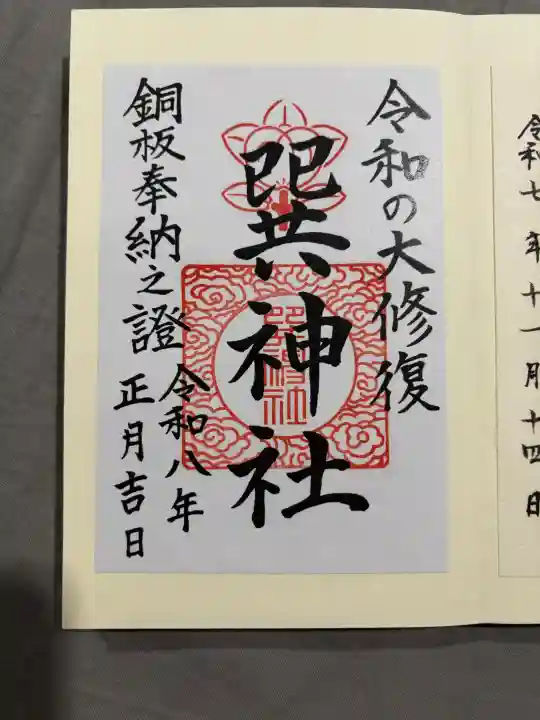 令和七年十一月十四日
令和の大修復
巽神社
巽神社
銅板奉納之證
令和八年
正月吉日